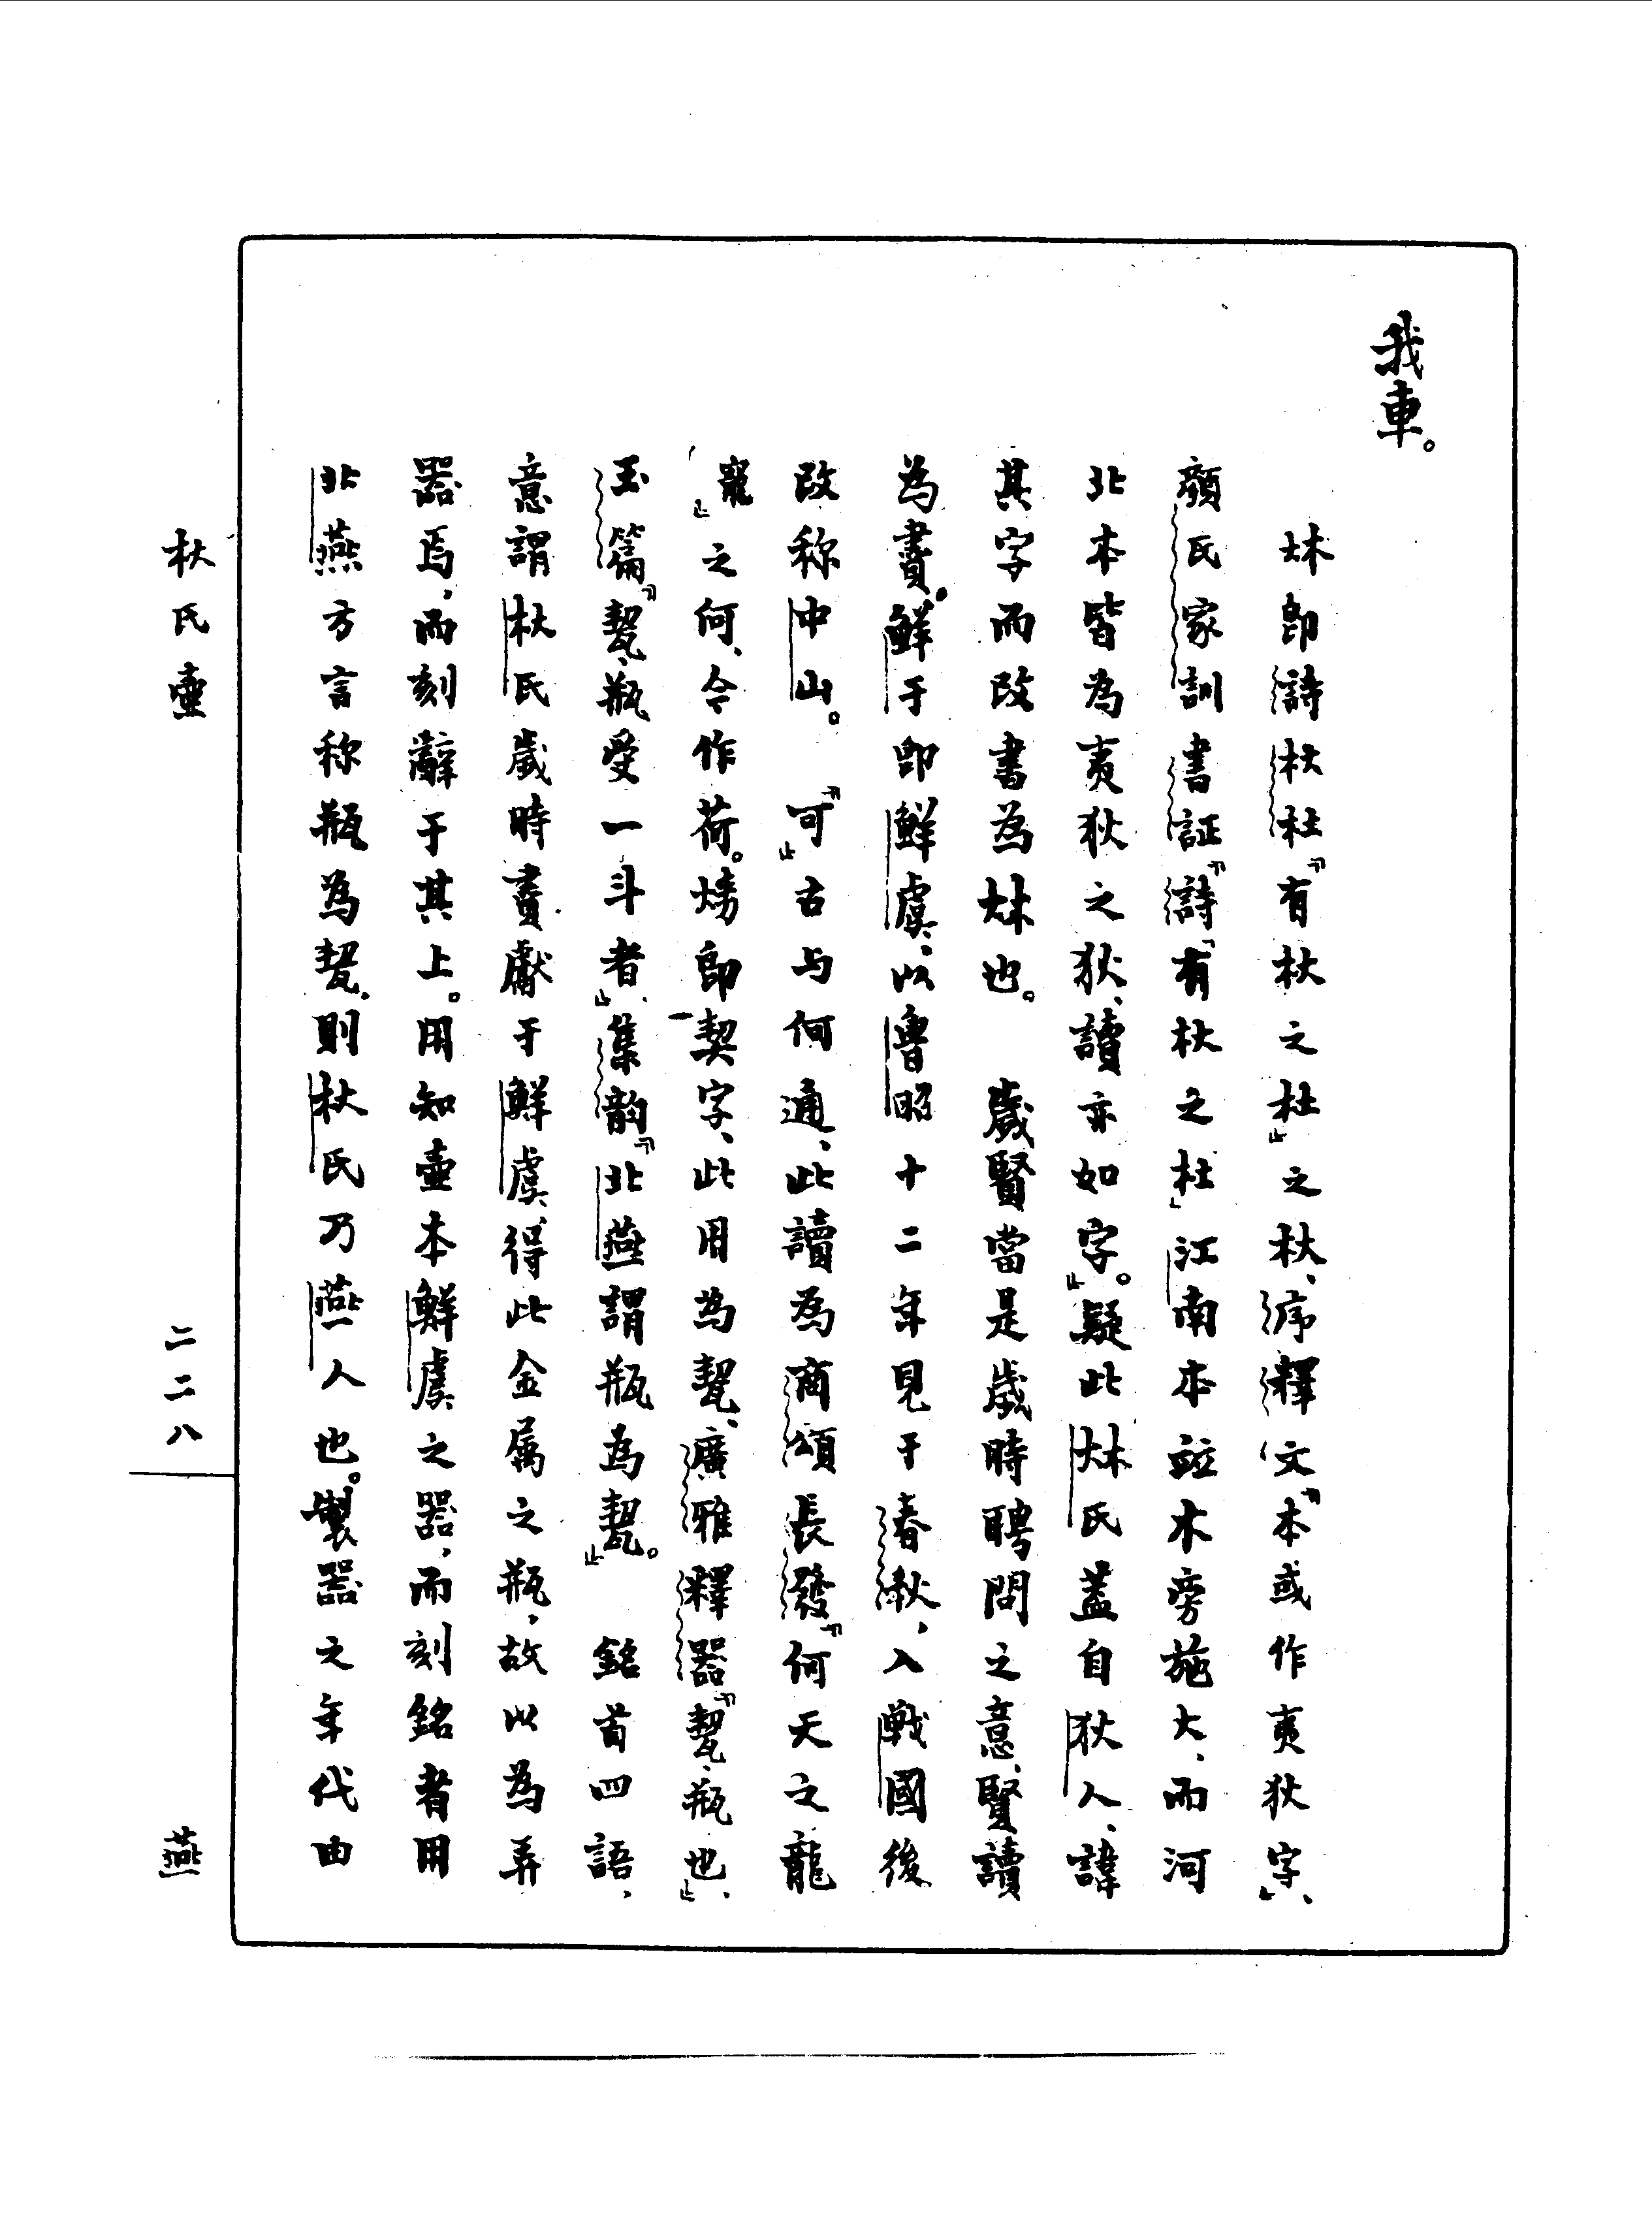 我車。
杕即詩杕杜『有杕之杜』之杕、序釋文『本或作夷狄字』、
顏氏家訓書証『詩「有杕之杜」江南本並木旁施大、而河
北本皆為夷狄之狄、讀亦如字。』疑此杕氏蓋自狄人、諱
其字而改書為杕也。　歲賢當是歲時聘問之意、賢讀
為賮。鮮于即鮮虞、以魯昭十二年見于春秋、入戰國後
改称中山。　『可』古与何通、此讀為商頌長發『何天之龍
寵』之何、今作荷。㛿即契字、此用為㼤、廣雅釋器『㼤、瓶也、』
玉篇『㼤、瓶受一斗者』、集韵『北燕謂瓶為㼤。』　銘首四語、
意謂杕氏歲時賮獻于鮮虞、得此金属之瓶、故以為弄
器焉、而刻辭于其上。用知壺本鮮虞之器、而刻銘者用
北燕方言称瓶為㼤、則杕氏乃燕人也。製器之年代由
杕氏壺
二二八
燕